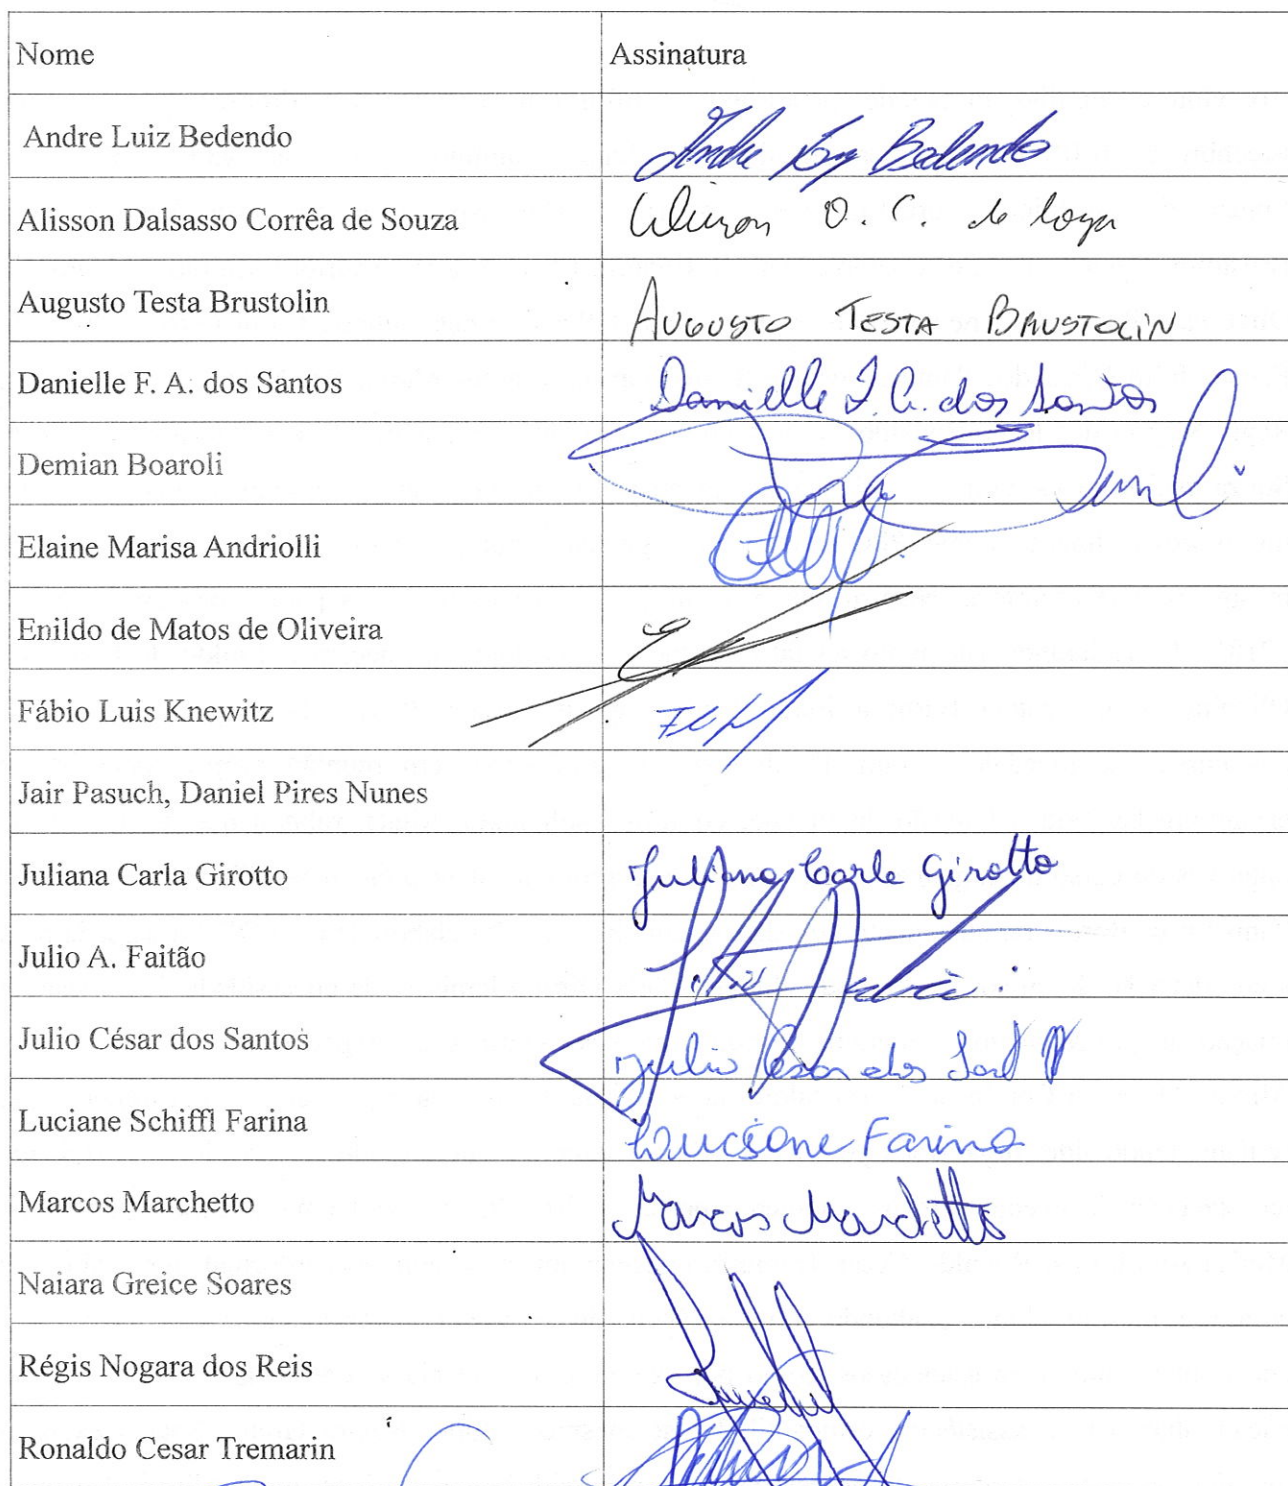 Nome Assinatura
Andre Luiz Bedendo Andre Luiz Bedendo
Alisson Dalsasso Corrêa de Souza Alisson D. C. de Souza
Augusto Testa Brustolin AUGUSTO TESTA BRUSTOLIN
Danielle F. A. dos Santos Danielle F. A. dos Santos
Demian Boaroli
Elaine Marisa Andriolli
Enildo de Matos de Oliveira
Fábio Luis Knewitz
Jair Pasuch, Daniel Pires Nunes
Juliana Carla Girotto Juliana Carla Girotto
Julio A. Faitão
Julio César dos Santos Julio Cesar dos
Luciane Schiffl Farina Luciane Farina
Marcos Marchetto Marcos Marchetto
Naiara Greice Soares
Régis Nogara dos Reis
Ronaldo Cesar Tremarin